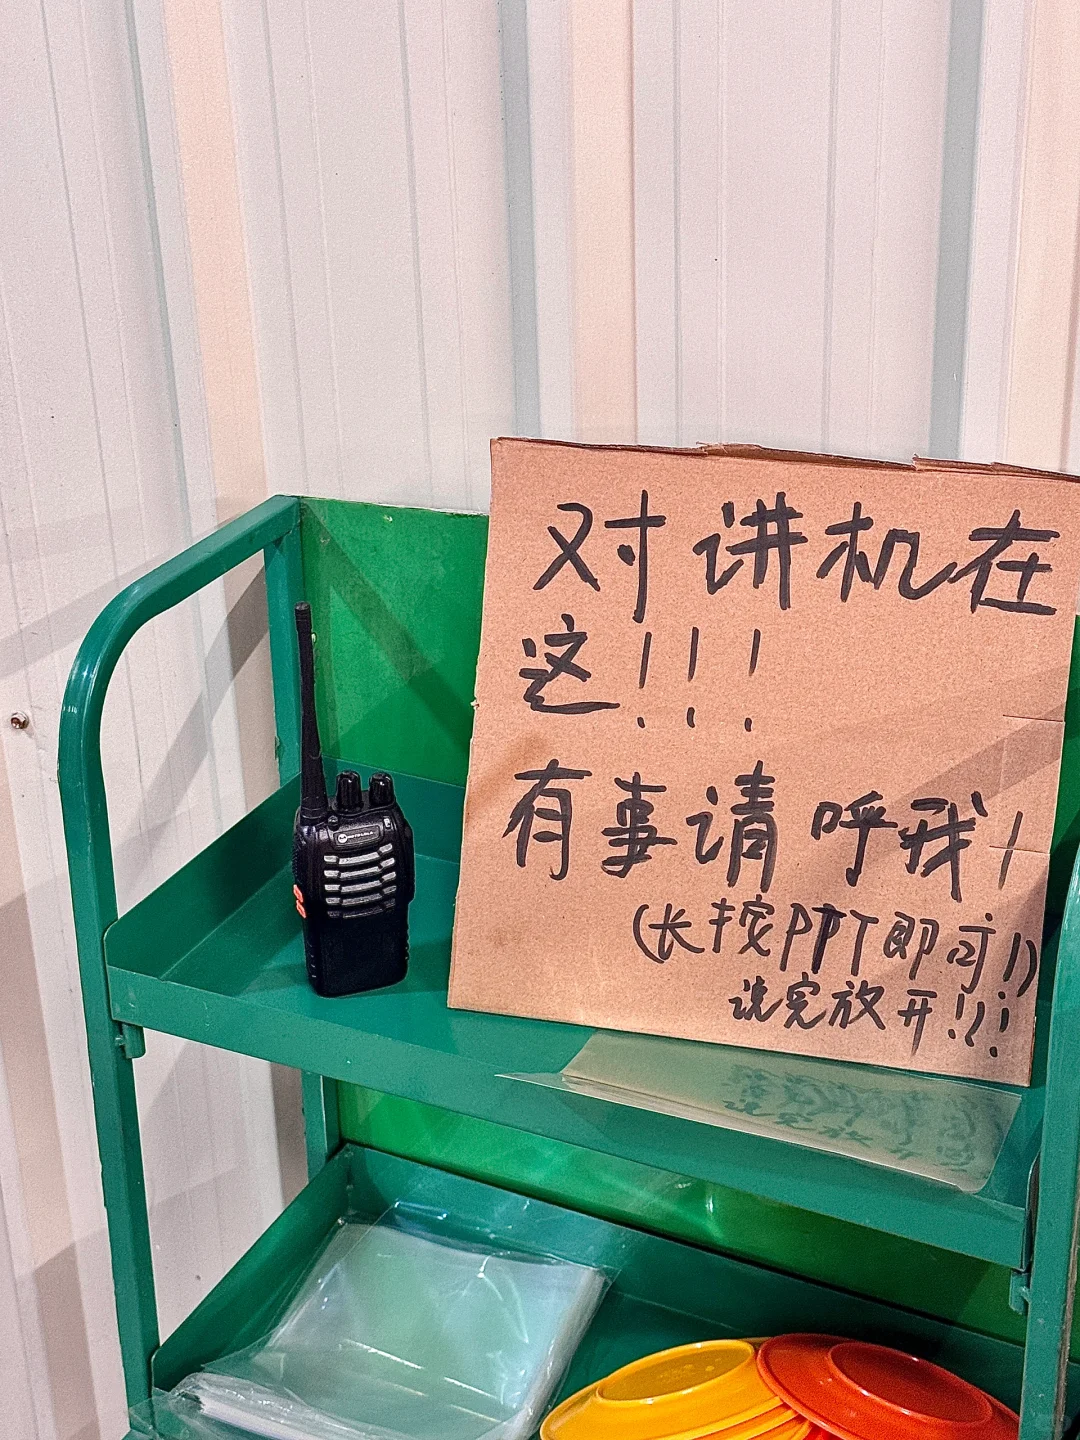 MOTOROLA
对讲机在
这!!!
有事请呼我!
(长按PPT即可!!)
说完放开!!!